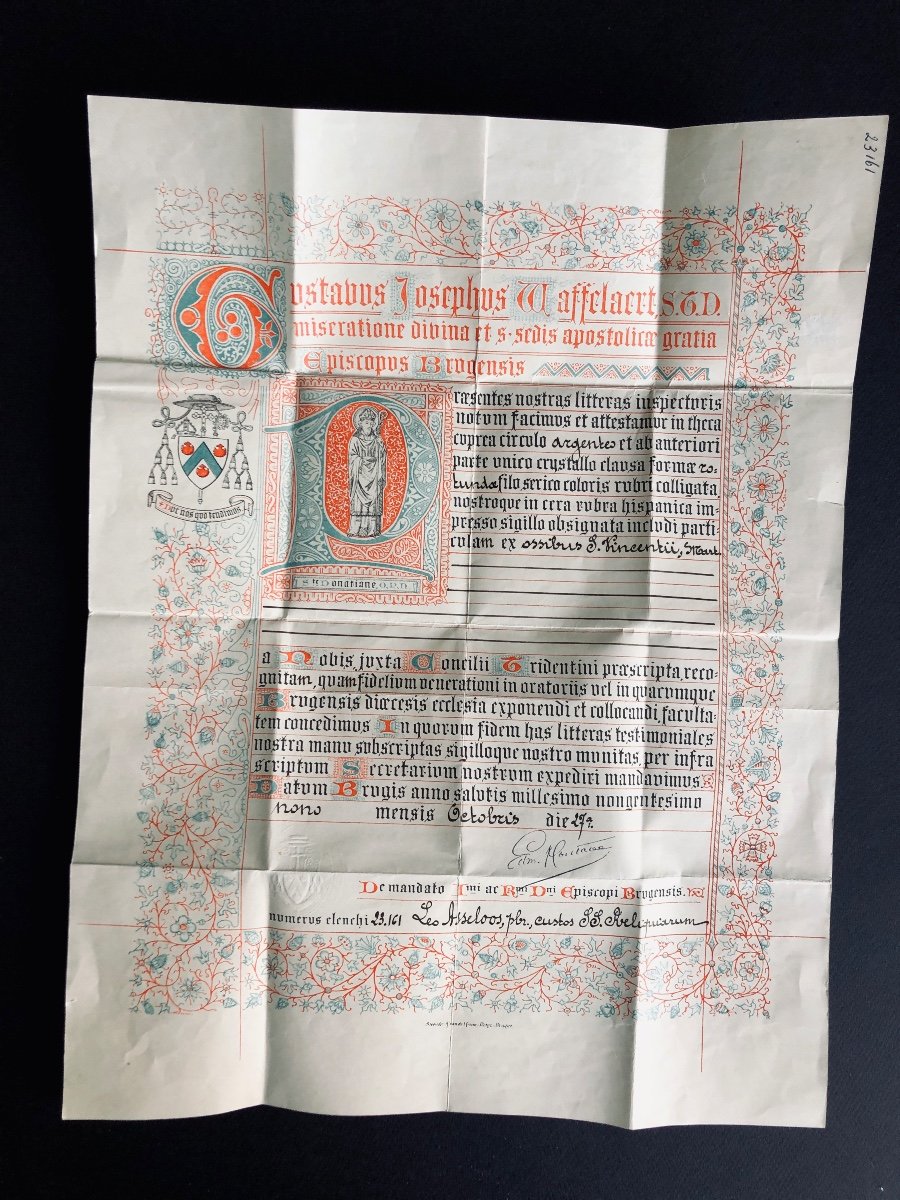 23161
Gustavus Josephus Waffelaert, S.T.D.
miseratione divina et s. sedis apostolicæ gratia
Episcopus Brugensis
Præsentes nostras litteras inspecturis
notum facimus et attestamur in theca
cuprea circulo argenteo et ab anteriori
parte unico crystallo clausa formæ ro-
tunda filo serico coloris rubri colligata,
nostroque in cera rubra hispanica im-
presso sigillo obsignata includi parti-
culam ex ossibus S. Vincentii, Mart.
hac nos quo tendimus
Ste Donatiane, O.P.N.
a Nobis, juxta Concilii Tridentini præscripta, reco-
gnitam, quam fidelium venerationi in oratoriis vel in quacumque
Brugensis diœcesis ecclesia exponendi et collocandi, faculta-
tem concedimus. In quorum fidem has litteras testimoniales
nostra manu subscriptas sigilloque nostro munitas, per infra
scriptum Secretarium nostrum expediri mandavimus.
Datum Brugis anno salutis millesimo nongentesimo
nono mensis Octobris die 27a.
De mandato Imi ac Rmi Dni Episcopi Brugensis.
numerus elenchi 23.161 Leo Asseloos, pbr., custos SS. Reliquiarum